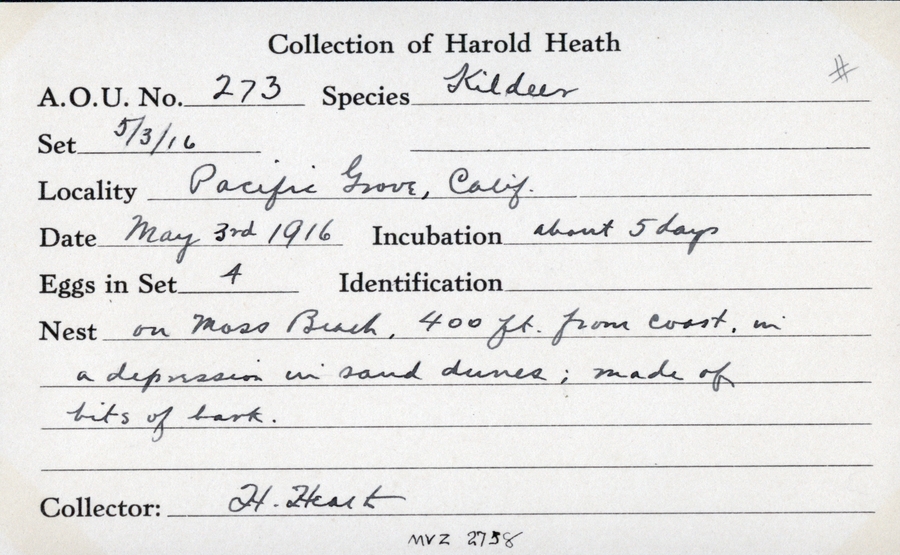 Collection of Harold Heath
#
A.O.U. No. 273 Species Kildeer
Set 5/3/16
Locality Pacific Grove, Calif.
Date May 3rd 1916 Incubation about 5 days
Eggs in Set 4 Identification
Nest on Moss Beach, 400 ft. from coast, in
a depression in sand dunes; made of
bits of bark.
Collector: H. Heath
MVZ 2738